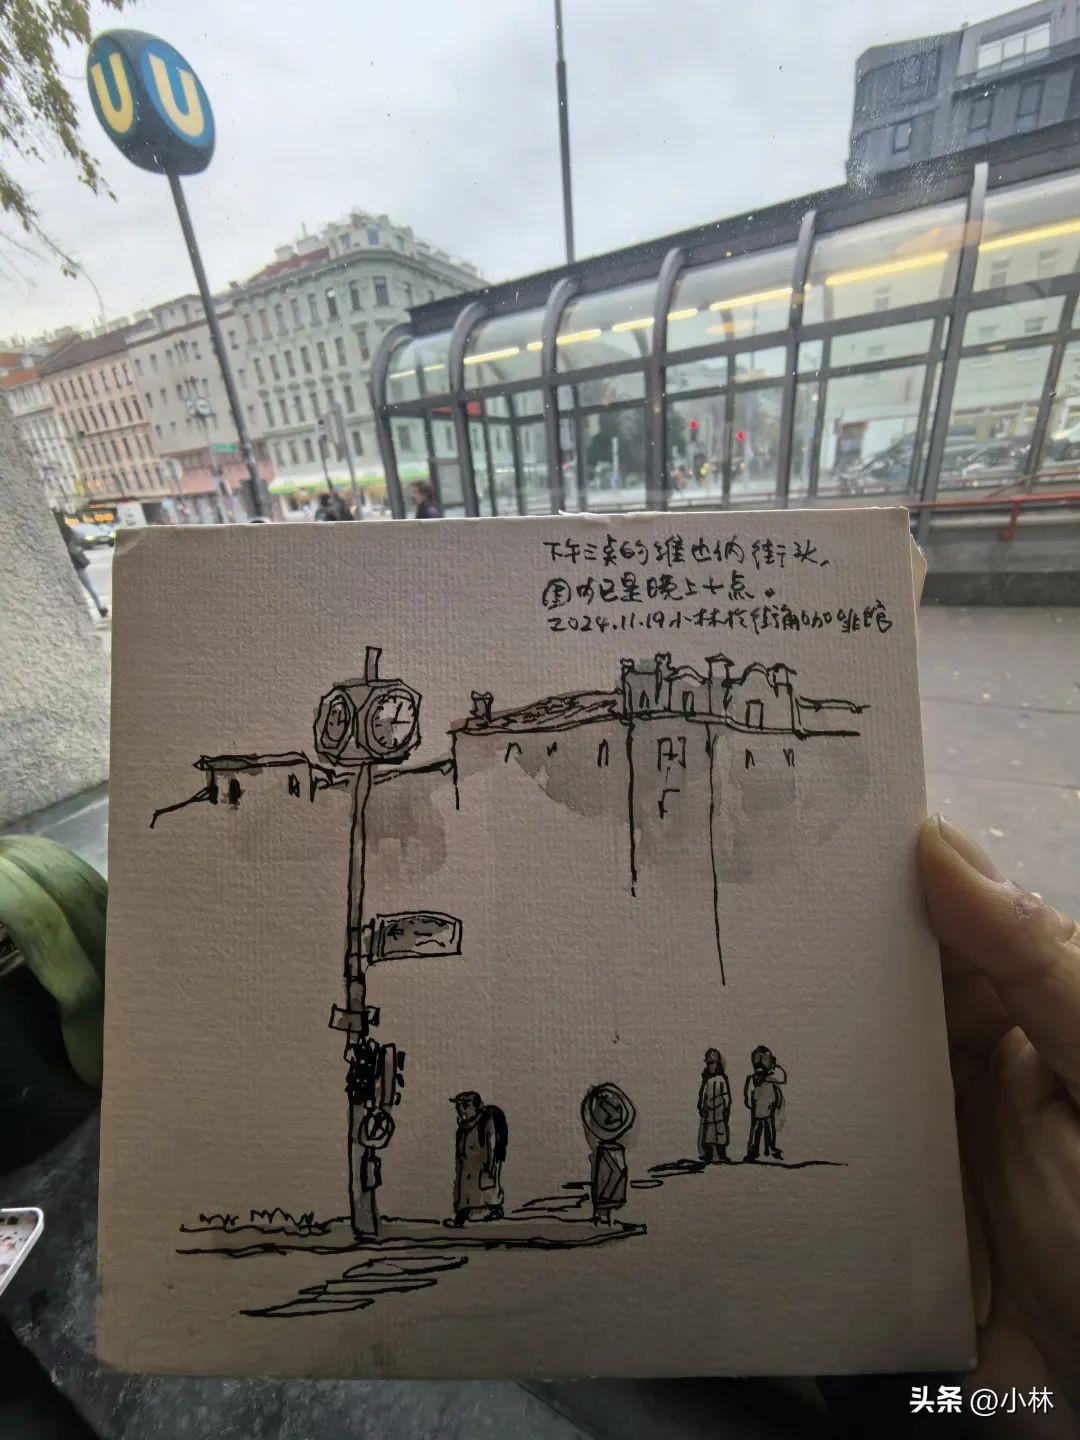 U U
下午三点的维也纳街头，
国内已是晚上十点。
2024.11.19小林于街角咖啡馆
头条 @小林